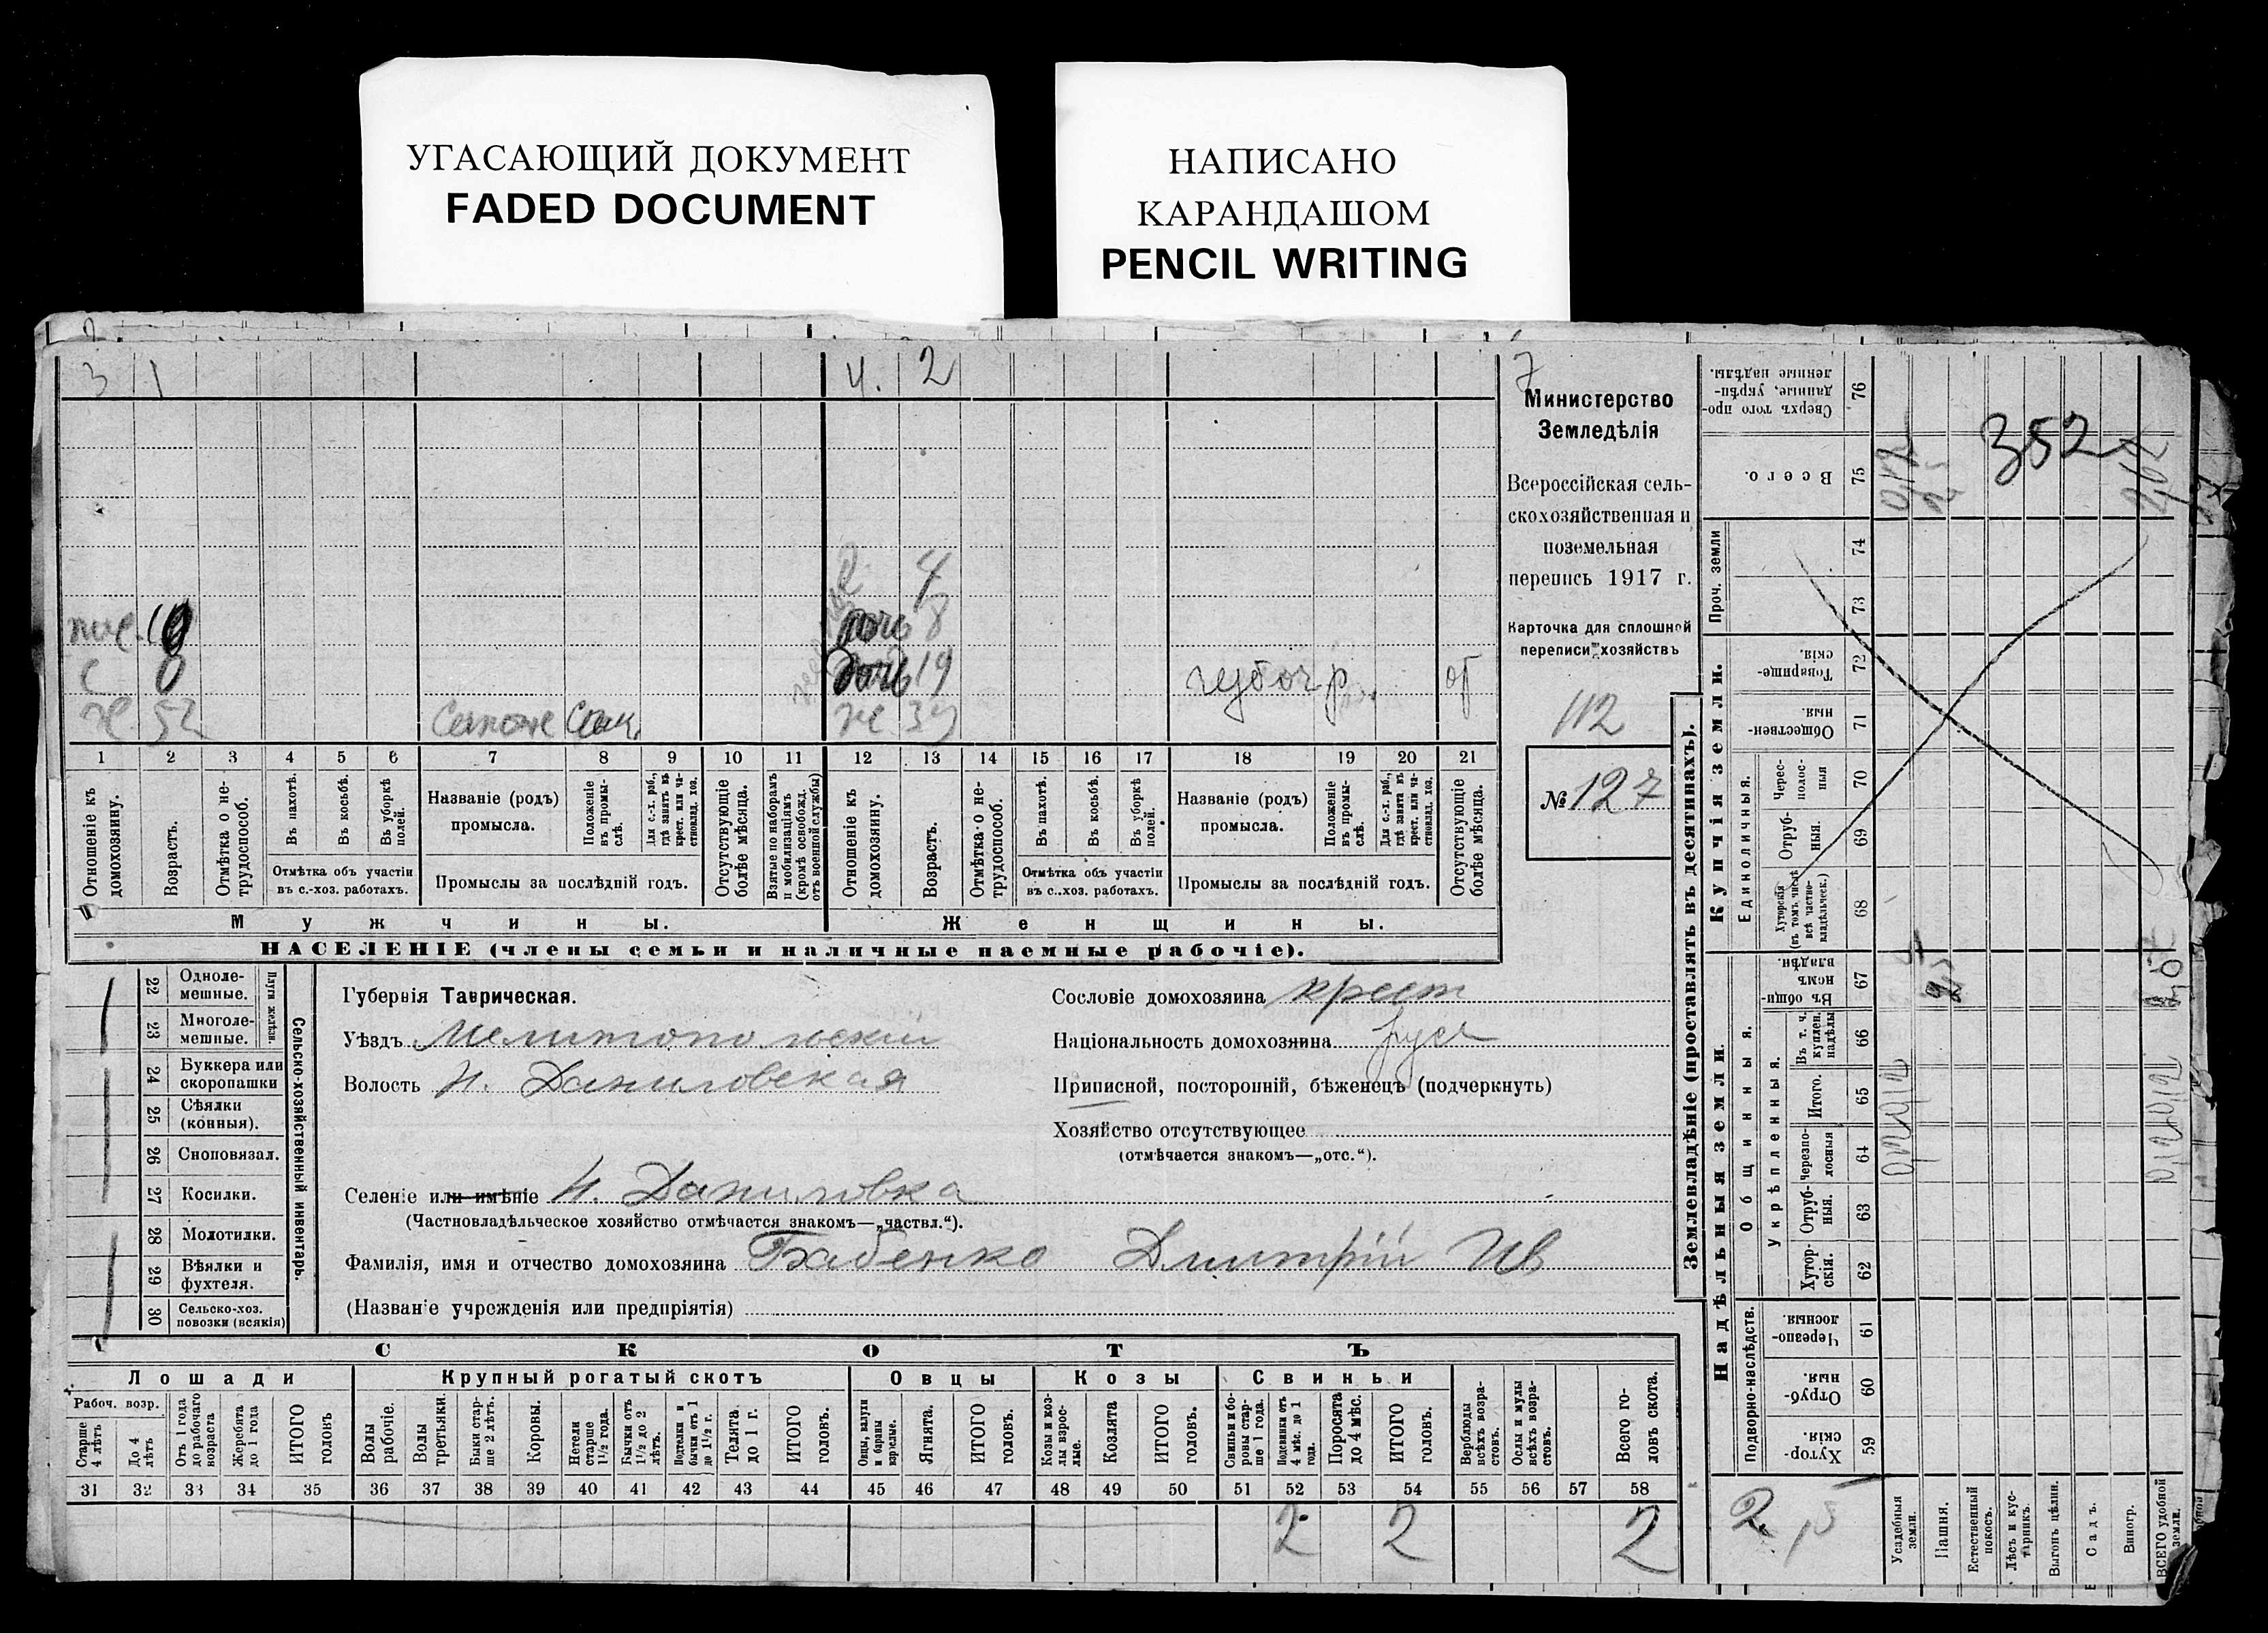 УГАСАЮЩИЙ ДОКУМЕНТ
FADED DOCUMENT
НАПИСАНО
КАРАНДАШОМ
PENCIL WRITING
3 1 4. 2
7
Министерство
Земледѣлія
Всероссійская сель-
скохозяйственная и
поземельная
перепись 1917 г.
Карточка для сплошной
переписи хозяйствъ
112
№ 127
4
8
дочь 19 об
52 Сапож
1 2 3 4 5 6 7 8 9 10 11 12 13 14 15 16 17 18 19 20 21
Отношеніе къ домохозяину.
Возрастъ.
Отмѣтка о не-трудоспособ.
Въ пахотѣ.
Въ косьбѣ.
Въ уборкѣ полей.
Отмѣтка объ участіи
въ с.-хоз. работахъ.
Названіе (родъ)
промысла.
Положеніе въ промы-слѣ.
Для с.-х. раб., гдѣ занятъ въ крест. или ча-стновлад. хоз.
Промыслы за послѣдній годъ.
Отсутствующіе болѣе мѣсяца.
Взятые по наборамъ и мобилизаціямъ (кромѣ освобожд. отъ военной службы)
Отношеніе къ домохозяину.
Возрастъ.
Отмѣтка о не-трудоспособ.
Въ пахотѣ.
Въ косьбѣ.
Въ уборкѣ полей.
Отмѣтка объ участіи
въ с.-хоз. работахъ.
Названіе (родъ)
промысла.
Положеніе въ промы-слѣ.
Для с.-х. раб., гдѣ занята въ крест. или ча-стновлад. хоз.
Промыслы за послѣдній годъ.
Отсутствующіе болѣе мѣсяца.
Мужчины. Женщины.
НАСЕЛЕНІЕ (члены семьи и наличные наемные рабочіе).
Сельско-хозяйственный инвентарь.
Плуги желѣзн.
22 Одноле-мешные.
23 Многоле-мешные.
24 Буккера или скоропашки
25 Сѣялки (конныя).
26 Сноповязал.
27 Косилки.
28 Молотилки.
29 Вѣялки и фухтеля.
30 Сельско-хоз. повозки (всякія)
Губернія Таврическая.
Уѣздъ Мелитопольскій
Волость Н. Даниловская
Селеніе или имѣніе Н. Даниловка
(Частновладѣльческое хозяйство отмѣчается знакомъ—„частвл.“).
Фамилія, имя и отчество домохозяина Бабенко Дмитрій Ив
(Названіе учрежденія или предпріятія)
Сословіе домохозяина крест
Національность домохозяина русс
Приписной, посторонній, бѣженецъ (подчеркнуть)
Хозяйство отсутствующее
(отмѣчается знакомъ—„отс.“).
СКОТЪ
Лошади Крупный рогатый скотъ Овцы Козы Свиньи
Рабоч. возр.
Старше 4 лѣтъ
До 4 лѣтъ
Отъ 1 года до рабочаго возраста
Жеребята до 1 года
ИТОГО головъ
Волы рабочіе.
Волы третьяки.
Быки стар-ше 2 лѣтъ.
Коровы.
Нетели старше 1½ года.
Бычки отъ 1½ до 2 лѣтъ.
Подтелки и бычки отъ 1 до 1½ г.
Телята до 1 г.
ИТОГО головъ.
Овцы, валухи и бараны взрослые.
Ягнята.
ИТОГО головъ.
Козы и коз-лы взрос-лые.
Козлята
ИТОГО головъ.
Свиньи и бо-ровы стар-ше 1 года.
Подсвинки отъ 4 мѣс. до 1 года.
Поросята до 4 мѣс.
ИТОГО головъ.
Верблюды всѣхъ возра-стовъ.
Ослы и мулы всѣхъ возра-стовъ.
Всего го-ловъ скота.
31 32 33 34 35 36 37 38 39 40 41 42 43 44 45 46 47 48 49 50 51 52 53 54 55 56 57 58
2 2 2
Землевладѣніе (проставлять въ десятинахъ).
Надѣльныя земли. Купчія земли.
Подворно-наслѣдств.
Общинныя.
Укрѣпленныя.
Единоличныя.
Проч. земли
Хутор-скія. 59
Отруб-ныя. 60
Черезпо-лосныя. 61
Хутор-скія. 62
Отруб-ныя. 63
Черезпо-лосныя 64
Итого. 65
Въ т. ч. куплен. надѣлы 66
Въ общи-номъ владѣн. 67
Хуторскія (въ томъ числѣ всѣ частно-владѣльческ.) 68
Отруб-ныя. 69
Черес-полос-ныя 70
Обществен-ныя. 71
Товарище-скія. 72
73
74
Всего. 75
Сверхъ того про-данные, укрѣп-ленные надѣлы. 76
352
2,5
Усадебныя земли.
Пашня.
Естественный покосъ.
Лѣсъ и кус-тарникъ.
Выгонъ цѣлин.
Садъ.
Виногр.
ВСЕГО удобной земли.